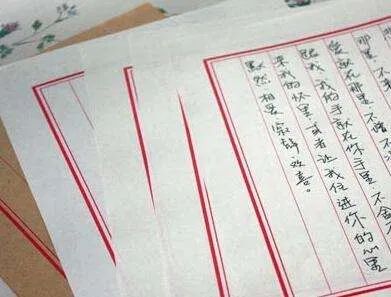 那里 不
爱就在那里 不增不
跟我 我的手就在你手里 不舍
来我的怀里 或者 让我住进你的心里
默然 相爱 寂静 欢喜。